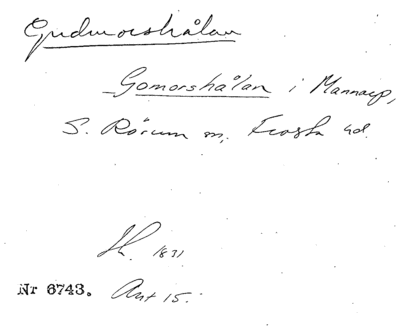 Gudmorshålan
Gomorshålan i Mannarp,
S. Rörum sn, Frosta hd.
1831
Nr 6743. Ant 15.